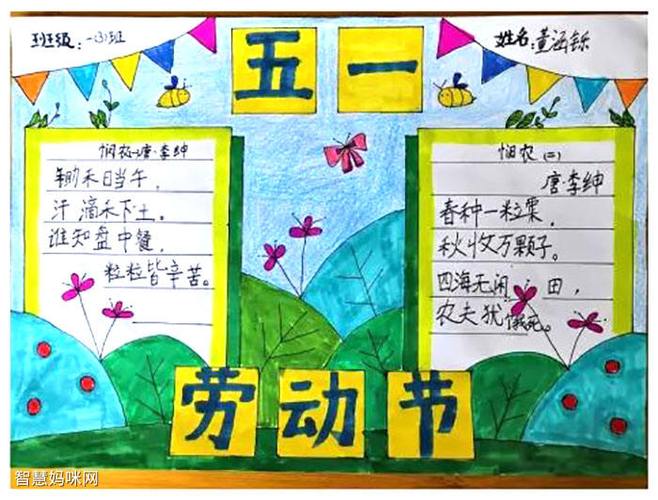 班级:一(3)班
姓名:董涵铄
五一
悯农 唐·李绅
锄禾日当午,
汗滴禾下土。
谁知盘中餐,
粒粒皆辛苦。
悯农(二)
唐·李绅
春种一粒粟,
秋收万颗子。
四海无闲田,
农夫犹饿死。
劳动节
智慧妈咪网